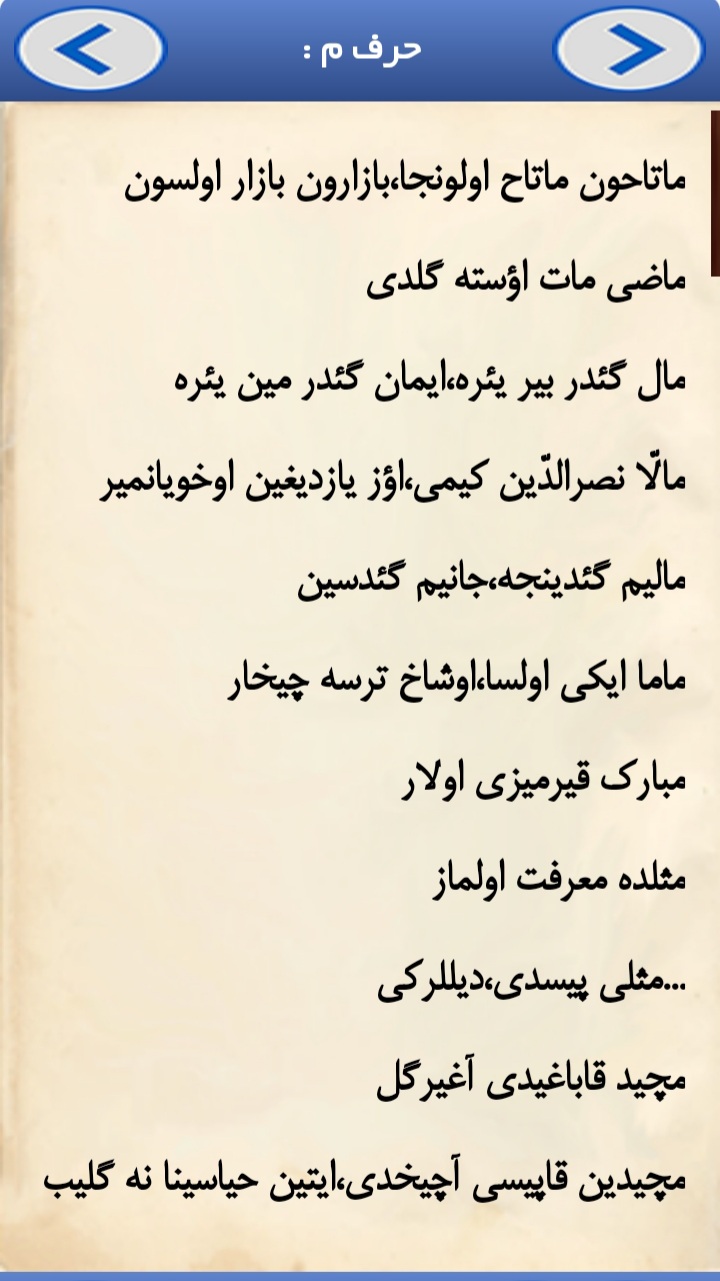 حرف م :
ماتاحون ماتاح اولونجا،بازارون بازار اولسون
ماضی مات اؤسته گلدی
مال گئدر بیر یئره،ایمان گئدر مین یئره
مالّا نصرالدّین کیمی،اؤز یازدیغین اوخویانمیر
مالیم گئدینجه،جانیم گئدسین
ماما ایکی اولسا،اوشاخ ترسه چیخار
مبارک قیرمیزی اولار
مثلده معرفت اولماز
...مثلی پیسدی،دیللرکی
مچید قاباغیدی آغیرگل
مچیدین قاپیسی آچیخدی،ایتین حیاسینا نه گلیب